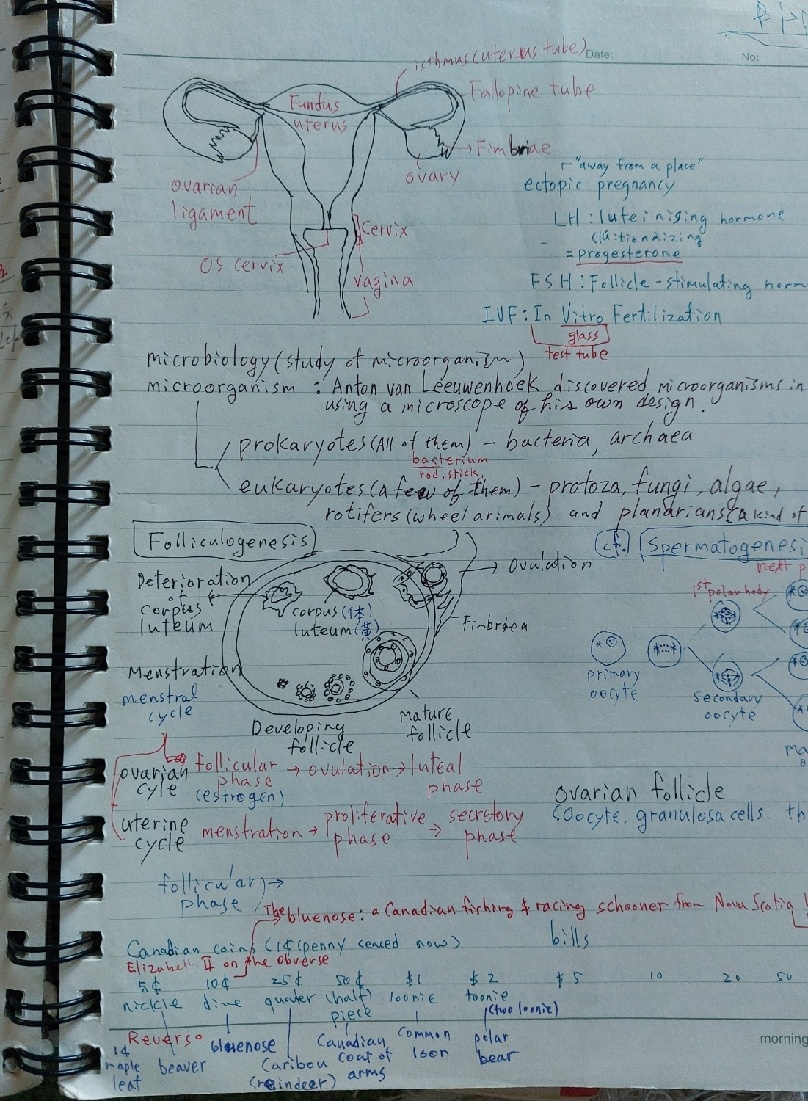 Date:
No:
isthmus(uterus tube)
Fallopine tube
Fundus
uterus
Fimbriae
ovary
ovarian
ligament
Cervix
OS cervix
vagina
"away from a place"
ectopic pregnancy
LH : luteinising hormone
= progesterone
FSH : Follicle-stimulating horm
IVF : In Vitro Fertilization
glass
test tube
microbiology (study of microorganism)
microorganism : Anton van Leeuwenhoek discovered microorganisms in
using a microscope of his own design.
prokaryotes (All of them) - bacteria, archaea
bacterium
rod, stick
eukaryotes (a few of them) - protoza, fungi, algae,
rotifers (wheel animals) and plandrians (a kind of
Folliculogenesis
cf.) Spermatogenesi
Ovulation
Deterioration
of
corpus
luteum
corpus (体)
luteum (黄)
Finbraea
1st polar body
next p
primary
oocyte
secondary
oocyte
ma
Menstration
menstral
cycle
Developing
follicle
mature
follicle
ovarian
cyle
follicular
phase
(estrogen)
→ ovulation → luteal
phase
uterine
cycle
menstration → proliferative
phase
→ secretory
phase
ovarian follicle
oocyte, granulosa cells th
follicular
phase
) →
The bluenose : a Canadian fishing & racing schooner from Nova Scotia
Canadian coins (1¢ (penny ceased now)
bills
Elizabeth II on the obverse
5¢ 10¢ 25¢ 50¢ $1 $2 $5 10 20 50
nickle dime quater (half loonie toonie
piece (two loonie)
Reverse
1¢
maple
leaf
beaver
bluenose
Caribou
(reindeer)
Canadian
coat of
arms
common
loon
polar
bear
morning